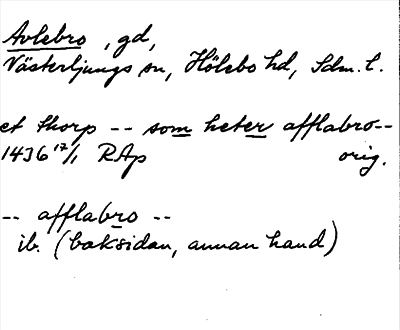 Avlebro, gd,
Västerljungs sn, Hölebo hd, Sdm. l.
et thorp -- som heter afflabro--
1436 17/1 RAp orig.
-- afflabro --
ib. (baksidan, annan hand)